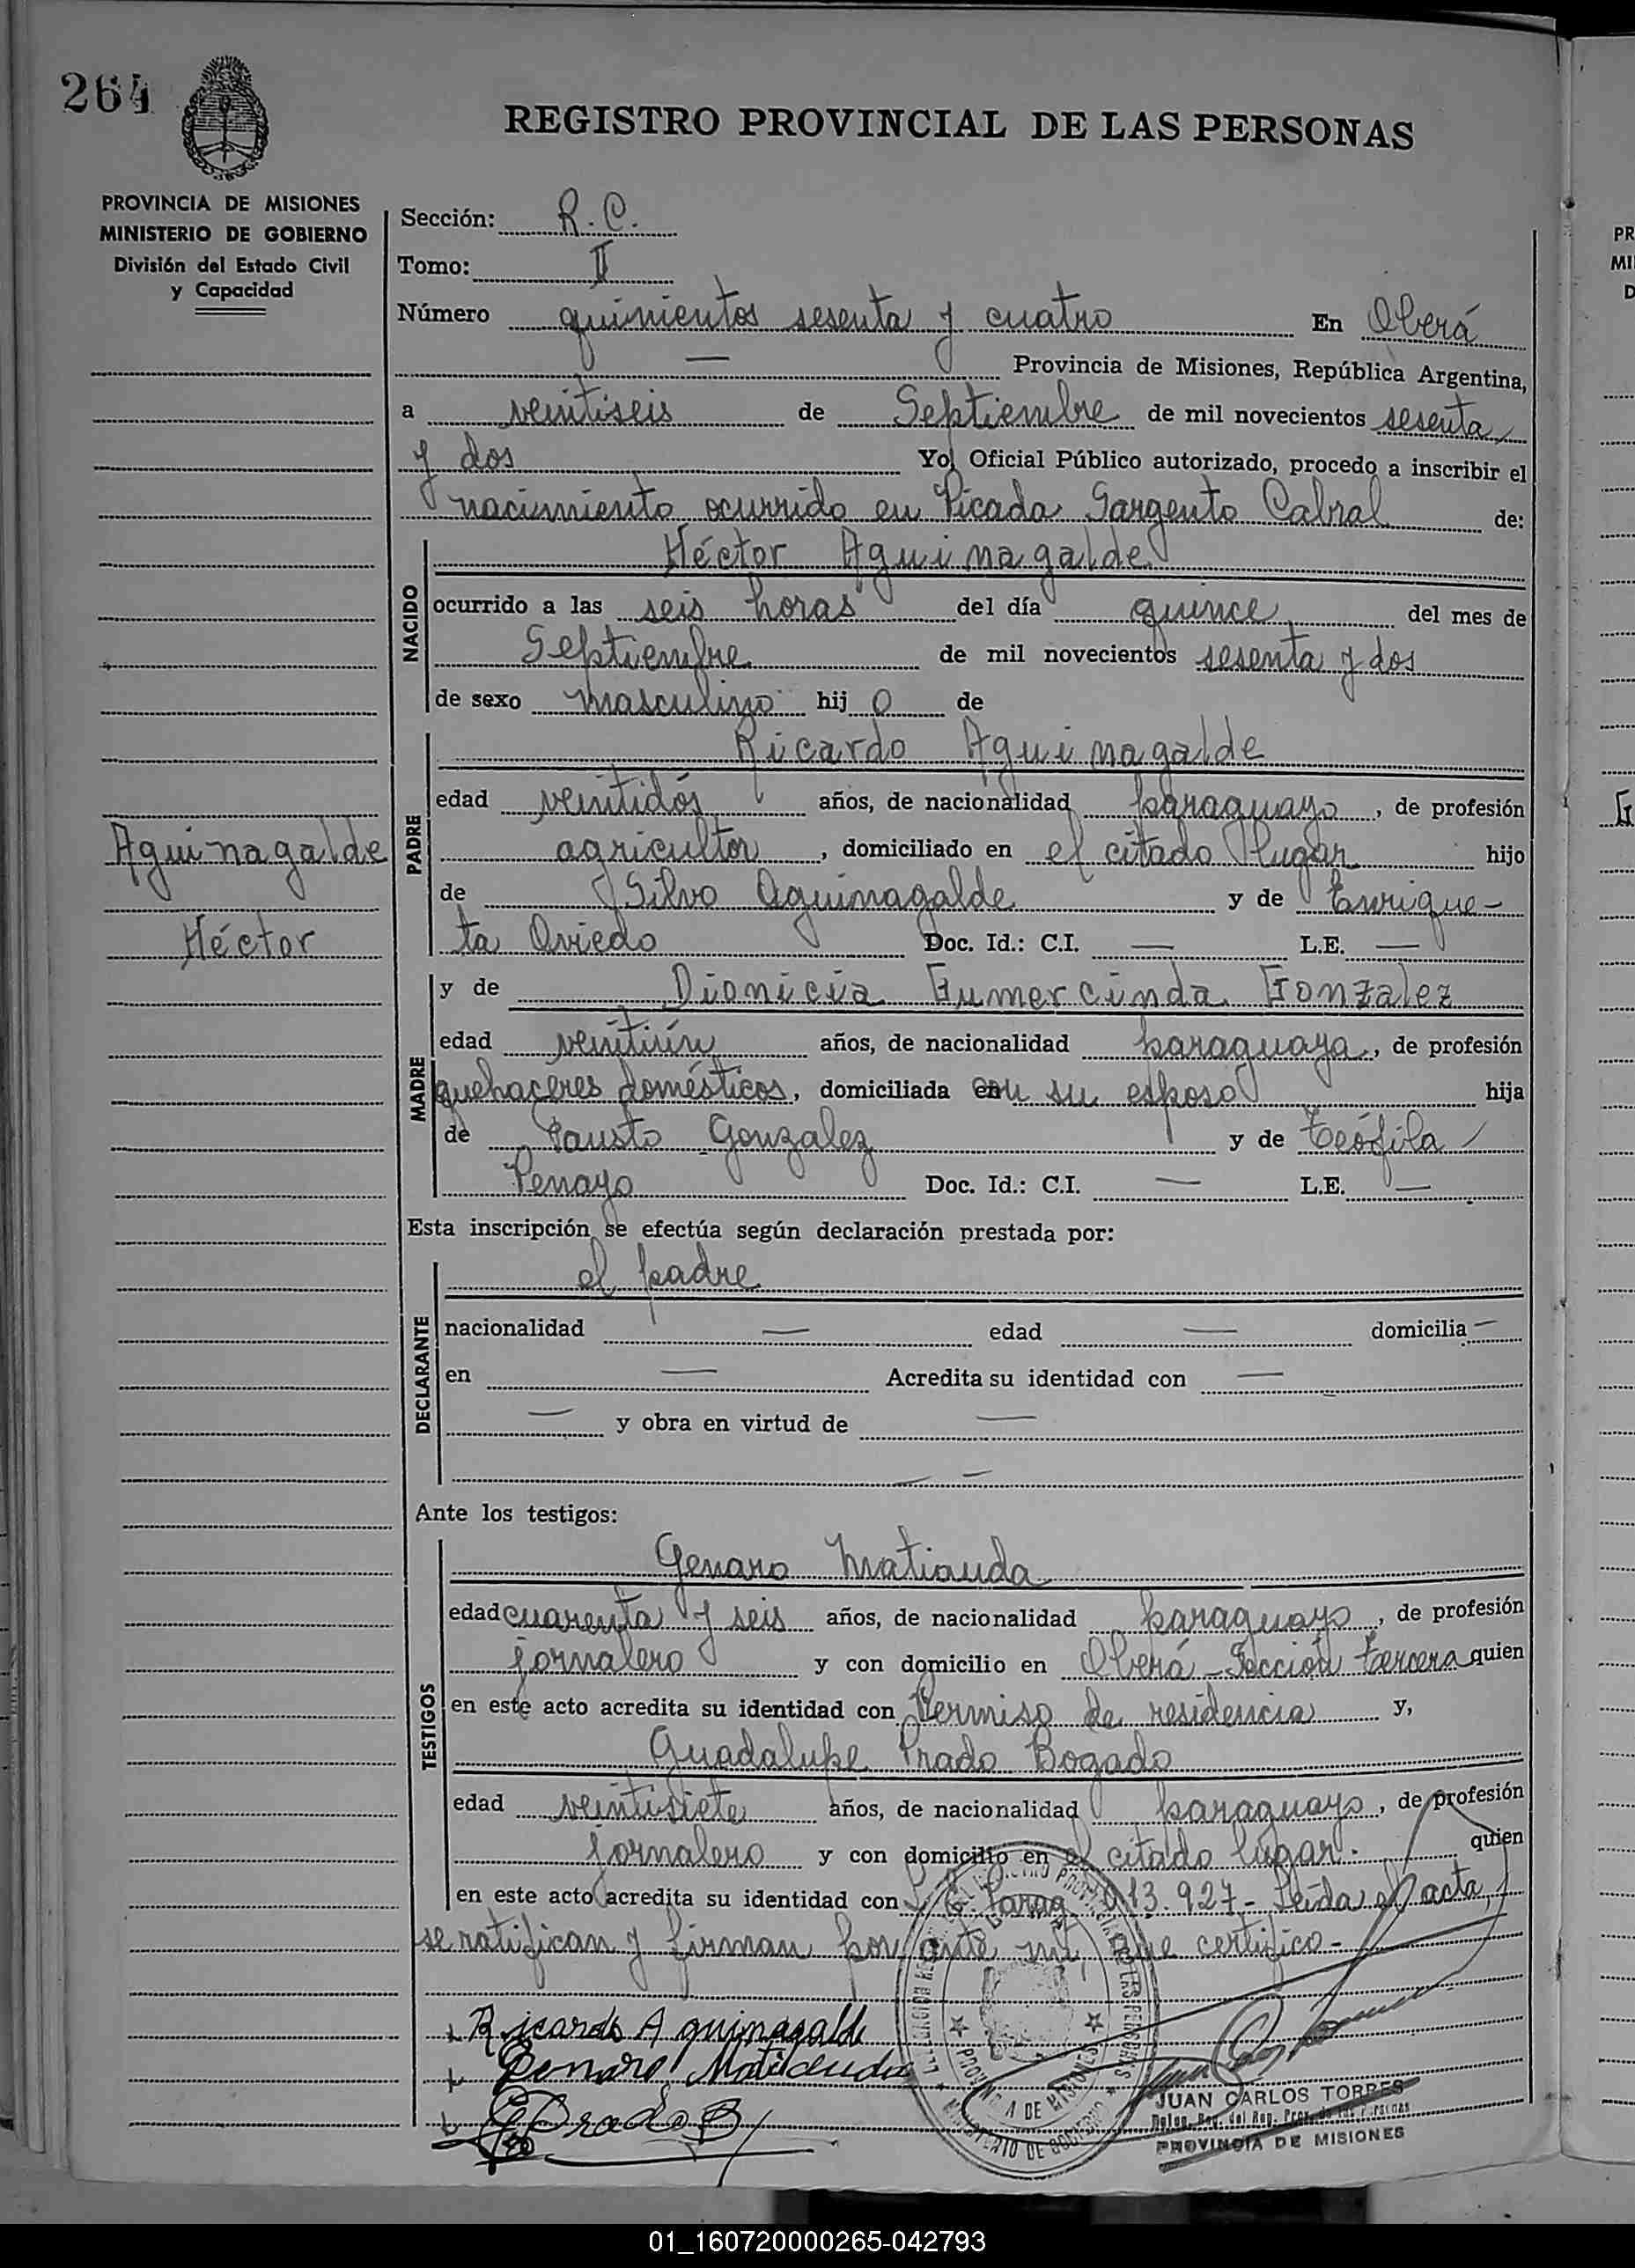 264
REGISTRO PROVINCIAL DE LAS PERSONAS
PROVINCIA DE MISIONES
MINISTERIO DE GOBIERNO
División del Estado Civil
y Capacidad
Sección: R. C.
Tomo: II
Número quinientos sesenta y cuatro En Oberá
— Provincia de Misiones, República Argentina,
a veintiseis de Septiembre de mil novecientos sesenta
y dos Yo, Oficial Público autorizado, procedo a inscribir el
nacimiento ocurrido en Picada Sargento Cabral de:
NACIDO
Héctor Aguinagalde
ocurrido a las seis horas del día quince del mes de
Septiembre de mil novecientos sesenta y dos
de sexo masculino hij o de
PADRE
Ricardo Aguinagalde
edad veintidós años, de nacionalidad paraguayo, de profesión
agricultor, domiciliado en el citado lugar hijo
de Silvo Aguinagalde y de Enrique-
ta Oviedo Doc. Id.: C.I. — L.E. —
Aguinagalde
Héctor
MADRE
y de Dionicia Gumercinda Gonzalez
edad veintiún años, de nacionalidad paraguaya, de profesión
quehaceres domésticos, domiciliada con su esposo hija
de Fausto Gonzalez y de Teófila
Penayo Doc. Id.: C.I. — L.E. —
Esta inscripción se efectúa según declaración prestada por:
DECLARANTE
el padre
nacionalidad — edad — domicilia —
en — Acredita su identidad con —
— y obra en virtud de —
— —
Ante los testigos:
TESTIGOS
Genaro Matiauda
edad cuarenta y seis años, de nacionalidad paraguayo, de profesión
jornalero y con domicilio en Oberá - Sección tercera quien
en este acto acredita su identidad con Permiso de residencia y,
Guadalupe Prado Bogado
edad veintisiete años, de nacionalidad paraguayo, de profesión
jornalero y con domicilio en el citado lugar. quien
en este acto acredita su identidad con C. Parag. 913.927- Leida el acta,
se ratifican y firman por ante mi, que certifico-
Ricardo Aguinagalde
Genaro Matiauda
G Prado B
PROVINCIA DE MISIONES
MINISTERIO DE GOBIERNO
JUAN CARLOS TORRES
PROVINCIA DE MISIONES
01_160720000265-042793